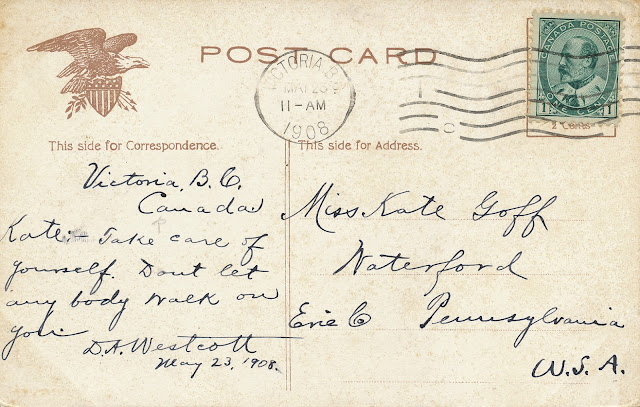 POST CARD
CANADA POSTAGE
ONE CENT
1 1
VICTORIA, B.C.
MAY 23
11-AM
1908
This side for Correspondence.
Victoria, B.C.
Canada
Kate:- Take care of
yourself. Dont let
any body walk on
you.
D.A. Westcott
May 23, 1908.
This side for Address.
Miss Kate Goff
Waterford
Erie C Pennsylvania
U.S.A.